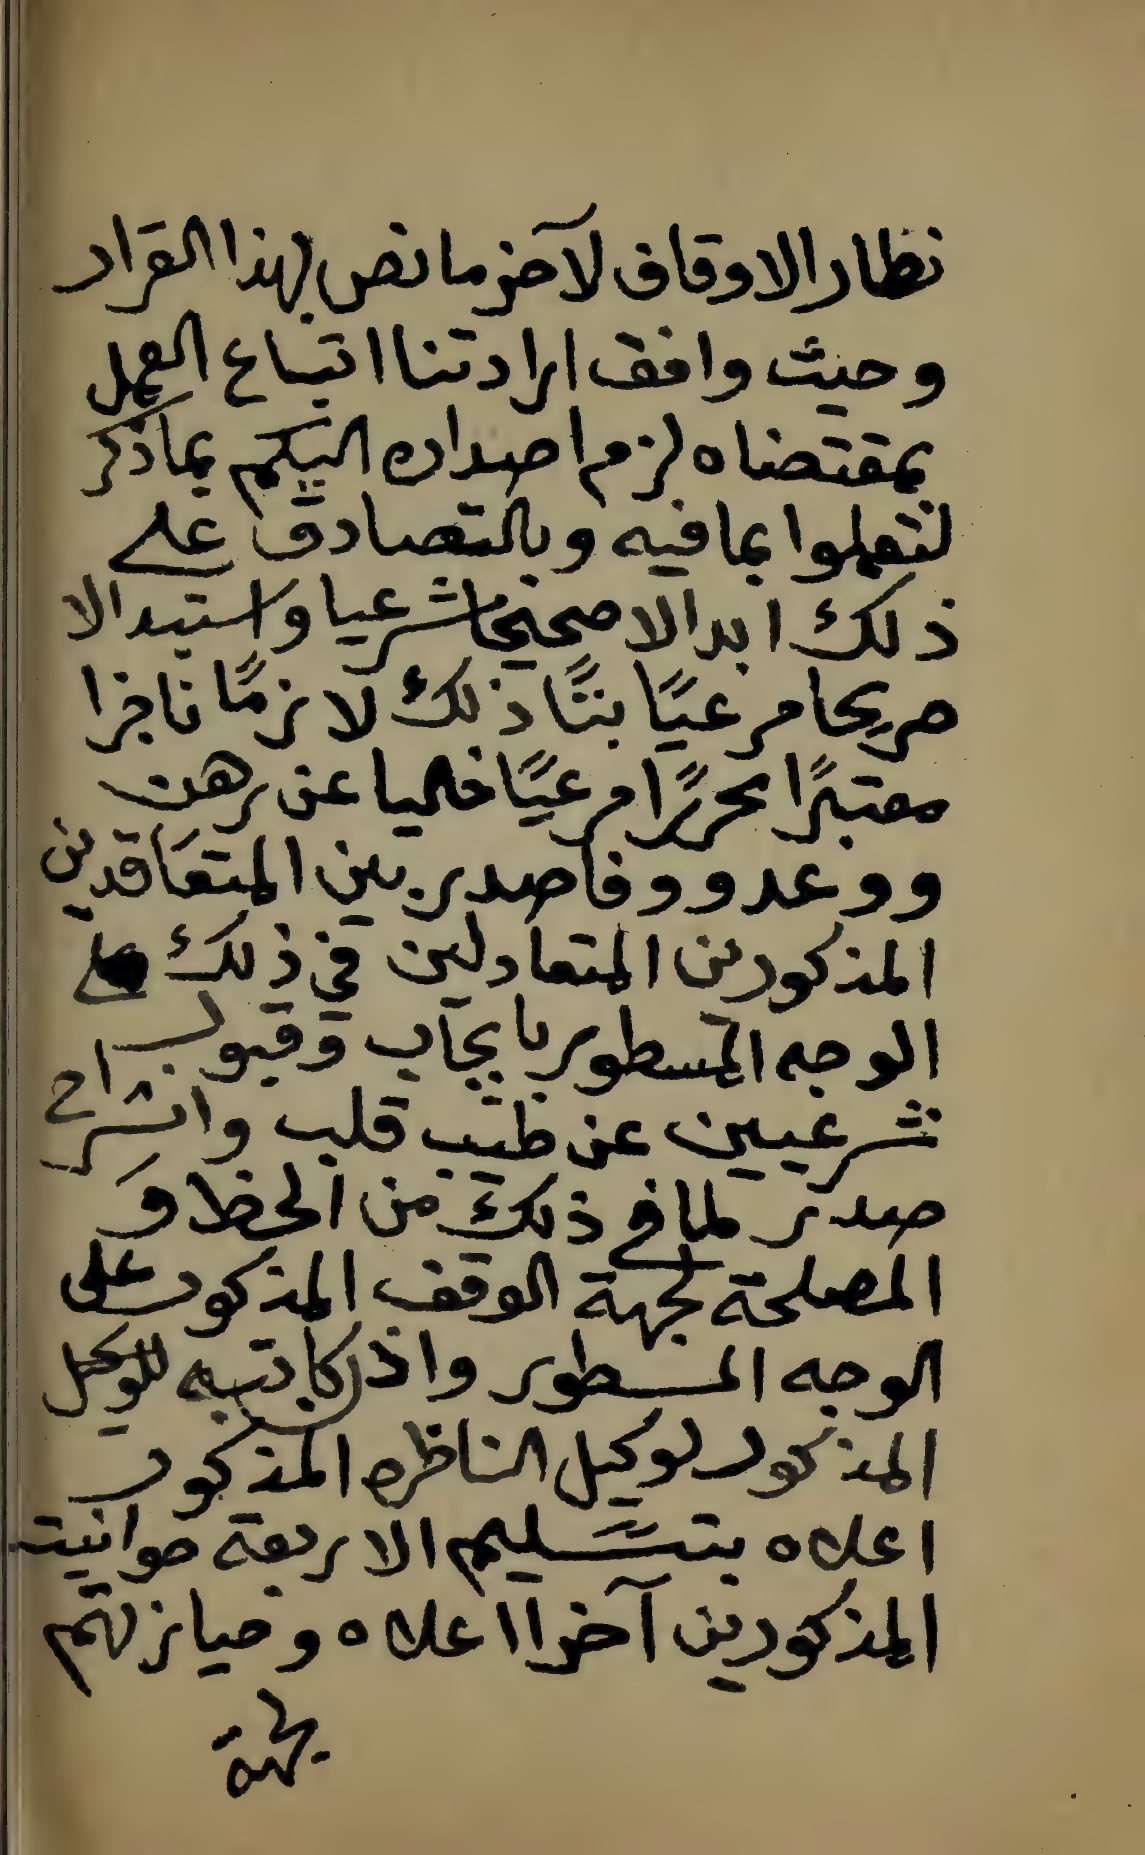 نظار الاوقاف لآخر ما نص بهذا القرار
وحيث وافق ارادتنا اتباع العمل
بمقتضاه لزم اصداره اليكم بما ذكر
لتعملوا بما فيه وبالتصادق على
ذلك ابدالا صحيحا شرعيا واستبدالا
صريحا مرعيًا بتًا ذلك لازمًا ناجزا
معتبرًا محررًا مرعيًا خاليا عن رهن
ووعد ووفا صدر بين المتعَاقدين
المذكورين المتعادلين في ذلك على
الوجه المسطور بايجاب وقبول
شرعيين عن طيب قلب وانشراح
صدر لما في ذلك من الحظ و
المصلحة لجهة الوقف المذكور على
الوجه المسطور واذن كاتبه للوكيل
المذكور لوكيل الناظره المذكور
اعلاه بتسليم الاربعة حوانيت
المذكورين آخرا اعلاه وحيازتهم
لجهة